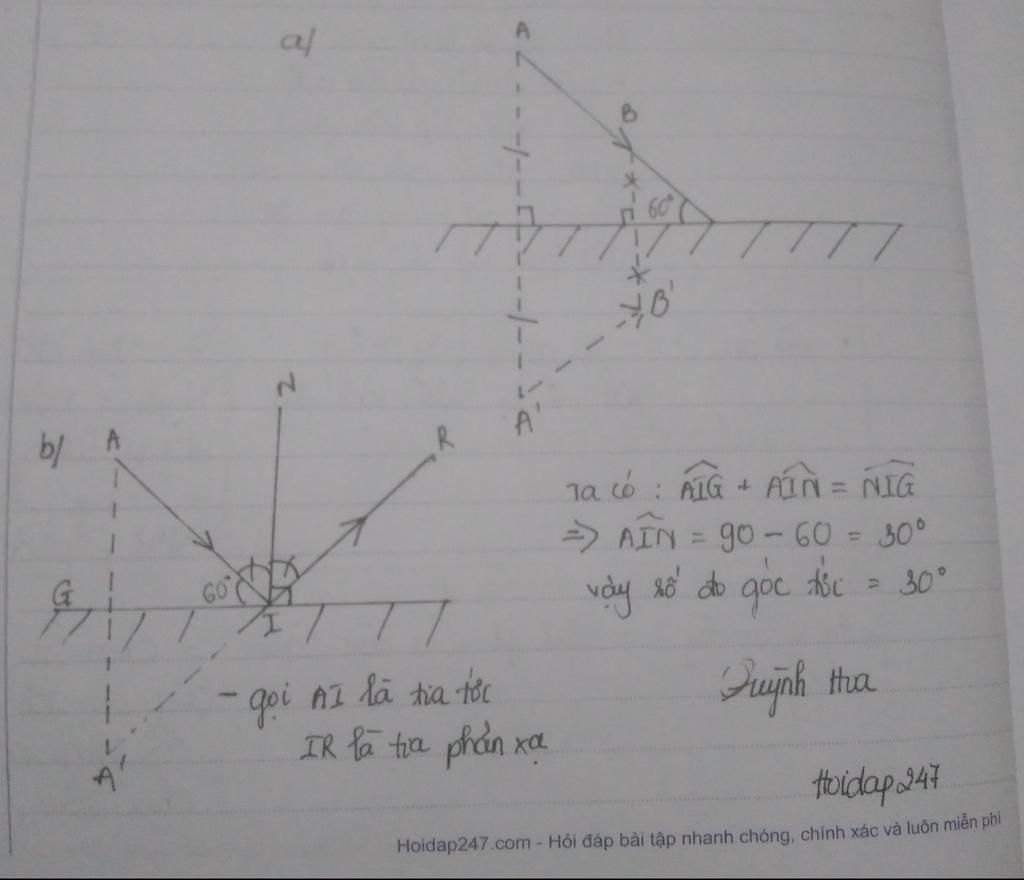 a/
A
B
60°
B'
A'
b/
A
N
R
60°
G
I
A'
Ta có : AIG + AIN = NIG
=> AIN = 90 - 60 = 30°
vậy số đo góc tới = 30°
- gọi AI là tia tới
IR là tia phản xạ
Quỳnh Hoa
Hoidap247
Hoidap247.com - Hỏi đáp bài tập nhanh chóng, chính xác và luôn miễn phí